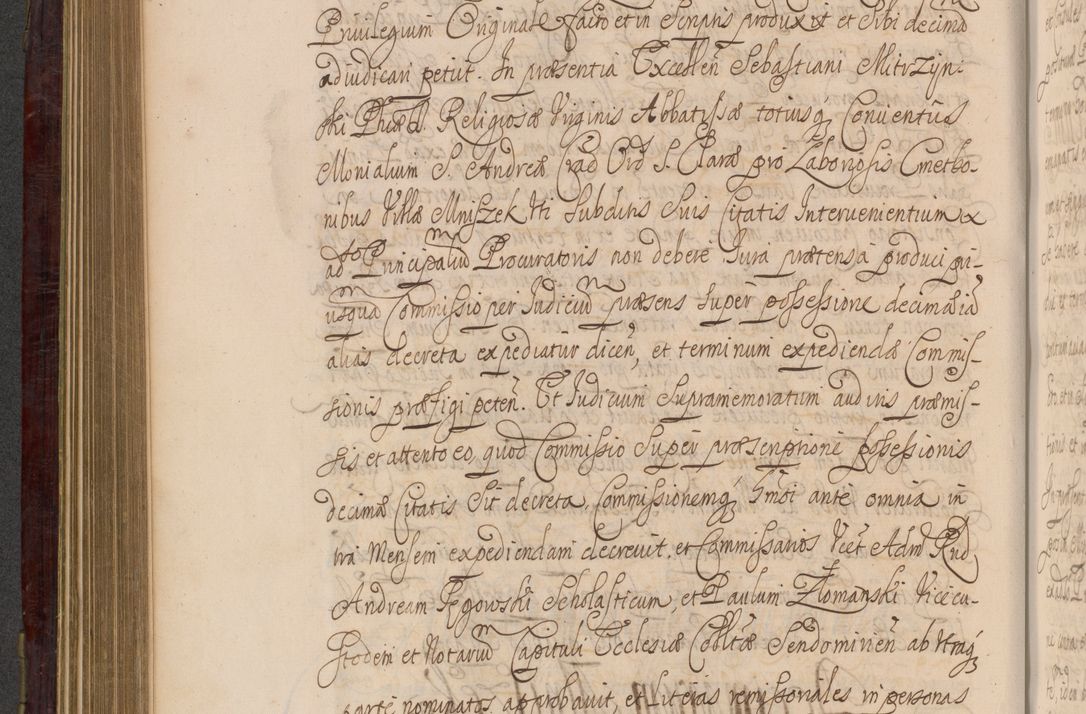 Privilegium Originale facto et in Scriptis produxit et Sibi decima
adiudicari petiit. In præsentia Excellen̄ Sebastiani Mitrzyn-
ski Religiosæ Virginis Abbatissæ totiusq Conuentûs
Monialium S. Andreæ Crad Ord S. Claræ pro Laboriosis Cmetho-
nibus Villæ Mniszek Iti Subditis Suis Citatis Interuenientium ex
ad Principaliū Procuratoris non debere Iura prætensa produci pri-
usqua Commissio per Iudiciū præsens Super possessione decimaliū
alias decreta expediatur dicen̄, et terminum expediendæ Commis-
sionis præfigi peten̄. Et Iudicium Supramemoratum auditis præmis-
sis et attento eo, quod Commissio Super præscriptione possessionis
decimæ Citatis Sit decreta, Commissionemq hmōi ante omnia in-
tra Mensem expediendam decreuit, et Commissarios Vcet Adm Rnd
Andream Pęgowski Scholasticum, et Paulum Złomanski Vicecu-
stodem et Notariū Capituli Ecclesiæ Collttæ Sendomirien̄ ab Vtraq
parte nominatos approbauit, et Literas remissoriales in personas